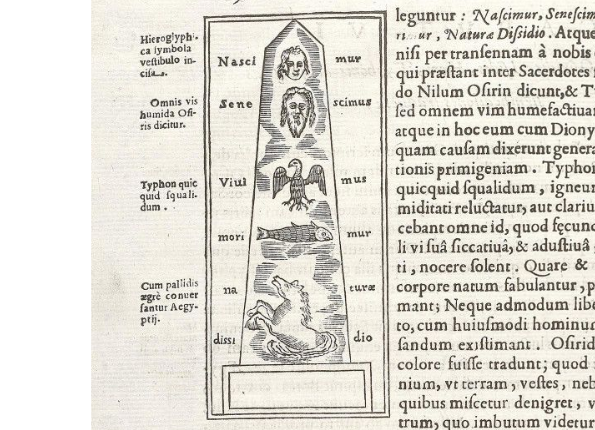 Hieroglyphi-
ca symbola
vestibulo in-
cisa.
Omnis vis
humida Osi-
ris dicitur.
Typhon quic
quid squali-
dum.
Cum pallidis
ægrè conuer
santur Aegy-
ptij.
Nasci mur
Sene scimus
Viui mus
mori mur
na turæ
dissi dio
leguntur : Nascimur, Senescim
mur, Naturæ Dissidio. Atque
nisi per transennam à nobis
qui præstant inter Sacerdotes
do Nilum Osirin dicunt, & T
sed omnem vim humefactiuam
atque in hoc eum cum Diony
quam causam dixerunt genera
tionis primigeniam. Typhon
quicquid squalidum, igneum
miditati reluctatur, aut clariu
cebant omne id, quod fęcun
li vi suâ siccatiuâ, & adustiuâ
ti, nocere solent. Quare &
corpore natum fabulantur, p
mant; Neque admodum libe
to, cum huiusmodi hominum
sandum existimant. Osirid
colore fuisse tradunt; quod
nium, vt terram, vestes, neb
quibus miscetur denigret, v
trum, quo imbutum videtur